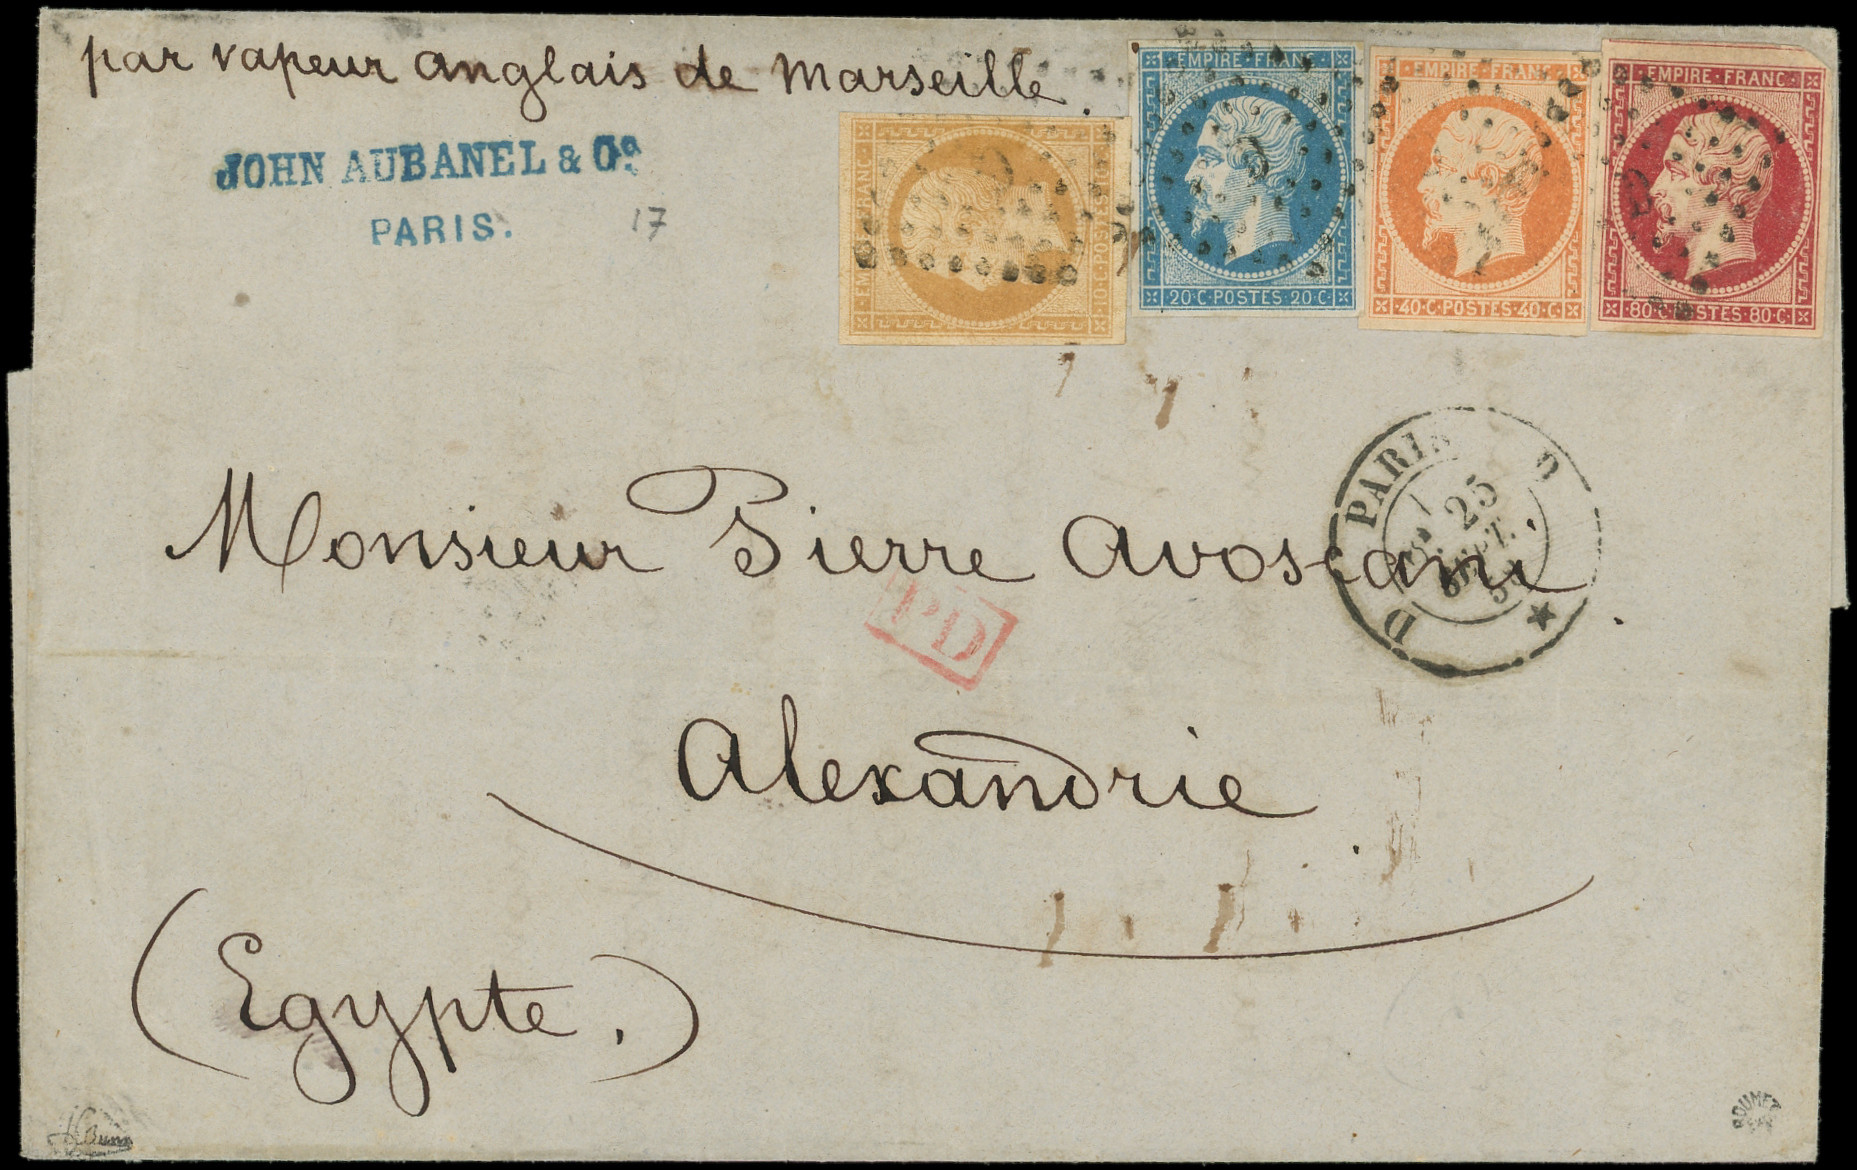 par vapeur anglais de Marseille.
JOHN AUBANEL & Co.
PARIS.
17
EMPIRE FRANC
10·C·POSTES·10·C
EMPIRE·FRANC
20·C·POSTES·20·C
EMPIRE·FRANC
40·C·POSTES·40·C
EMPIRE·FRANC
80·C·POSTES·80·C
PARIS
25
SEPT.
D
Monsieur Pierre Avoscani
PD
Alexandrie
(Egypte.)
ROUMET